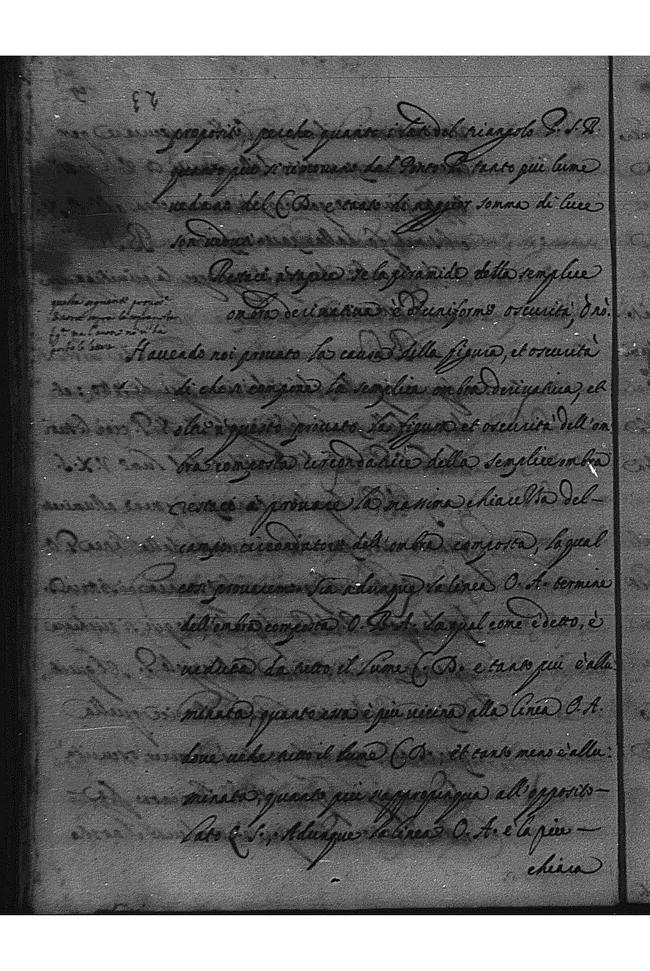 23
proposito, perche quanto i lati del triangolo P. S. R.
quanto più si rimovano dal Ponto R. tanto più lume
vedano del C. D. e tanto di maggior somma di luce
son
Restaci a sapere se la piramide della semplice
ombra derivativa è d'uniforme oscurità, ò nò.
questa
Havendo noi provato la causa della figura, et oscurità
di che si compone la semplice ombra derivativa, et
oltre a questo provato la figura et oscurità dell'om
bra composta circondatrice della semplice ombra
restaci a provare la massima chiarezza del-
campo circondatore dell'ombra composta, la qual
così provaremo. Sia adunque la linea O. A. termine
dell'ombra composta O. R. A. la qual come è detto, è
veduta da tutto il lume C. D. e tanto più è allu
minata, quanto essa è più vicina alla linea O. A.
dove vede tutto il lume C. D., et tanto meno è allu:
minata, quanto più s'appropinqua all'opposito-
lato Q. S., Adunque la linea O. A. è la più-
chiara